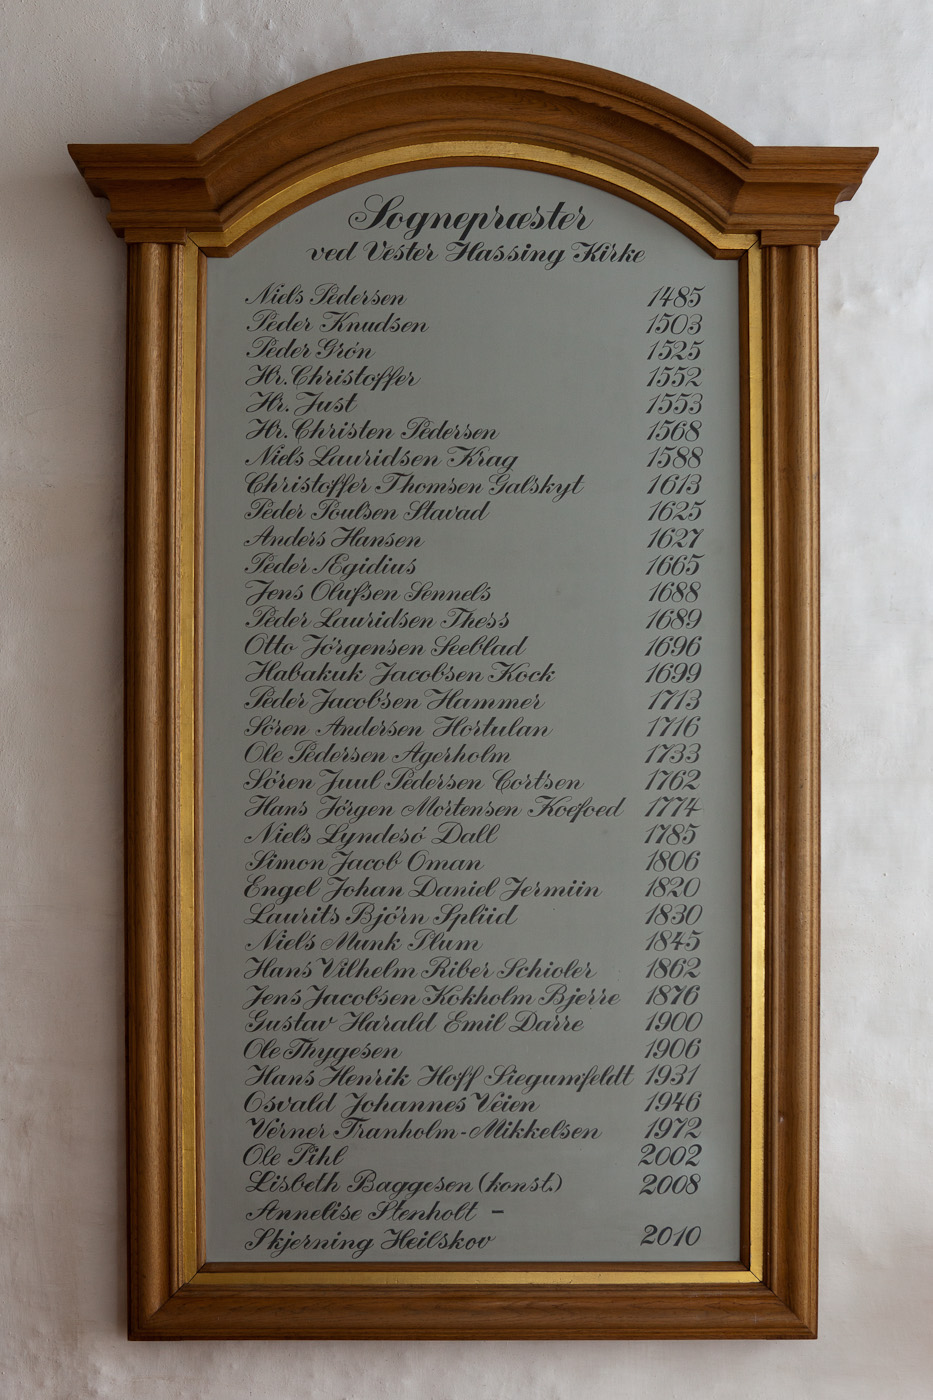 Sognepræster
ved Vester Hassing Kirke
Niels Pedersen 1485
Peder Knudsen 1503
Peder Grøn 1525
Hr. Christoffer 1552
Hr. Just 1553
Hr. Christen Pedersen 1568
Niels Lauridsen Krag 1588
Christoffer Thomsen Galskyt 1613
Peder Poulsen Stavad 1625
Anders Hansen 1627
Peder Ægidius 1665
Jens Olufsen Sennels 1688
Peder Lauridsen Thess 1689
Otto Jörgensen Seeblad 1696
Habakuk Jacobsen Kock 1699
Peder Jacobsen Hammer 1713
Sören Andersen Hortulan 1716
Ole Pedersen Agerholm 1733
Sören Juul Pedersen Cortsen 1762
Hans Jörgen Mortensen Koefoed 1774
Niels Lyndesó Dall 1785
Simon Jacob Oman 1806
Engel Johan Daniel Jermiin 1820
Laurits Björn Spliid 1830
Niels Munk Plum 1845
Hans Vilhelm Riber Schioler 1862
Jens Jacobsen Kokholm Bjerre 1876
Gustav Harald Emil Darre 1900
Ole Thygesen 1906
Hans Henrik Hoff Siegumfeldt 1931
Osvald Johannes Veien 1946
Verner Tranholm-Mikkelsen 1972
Ole Pihl 2002
Lisbeth Baggesen (konst.) 2008
Annelise Stenholt -
Skjerning Heilskov 2010